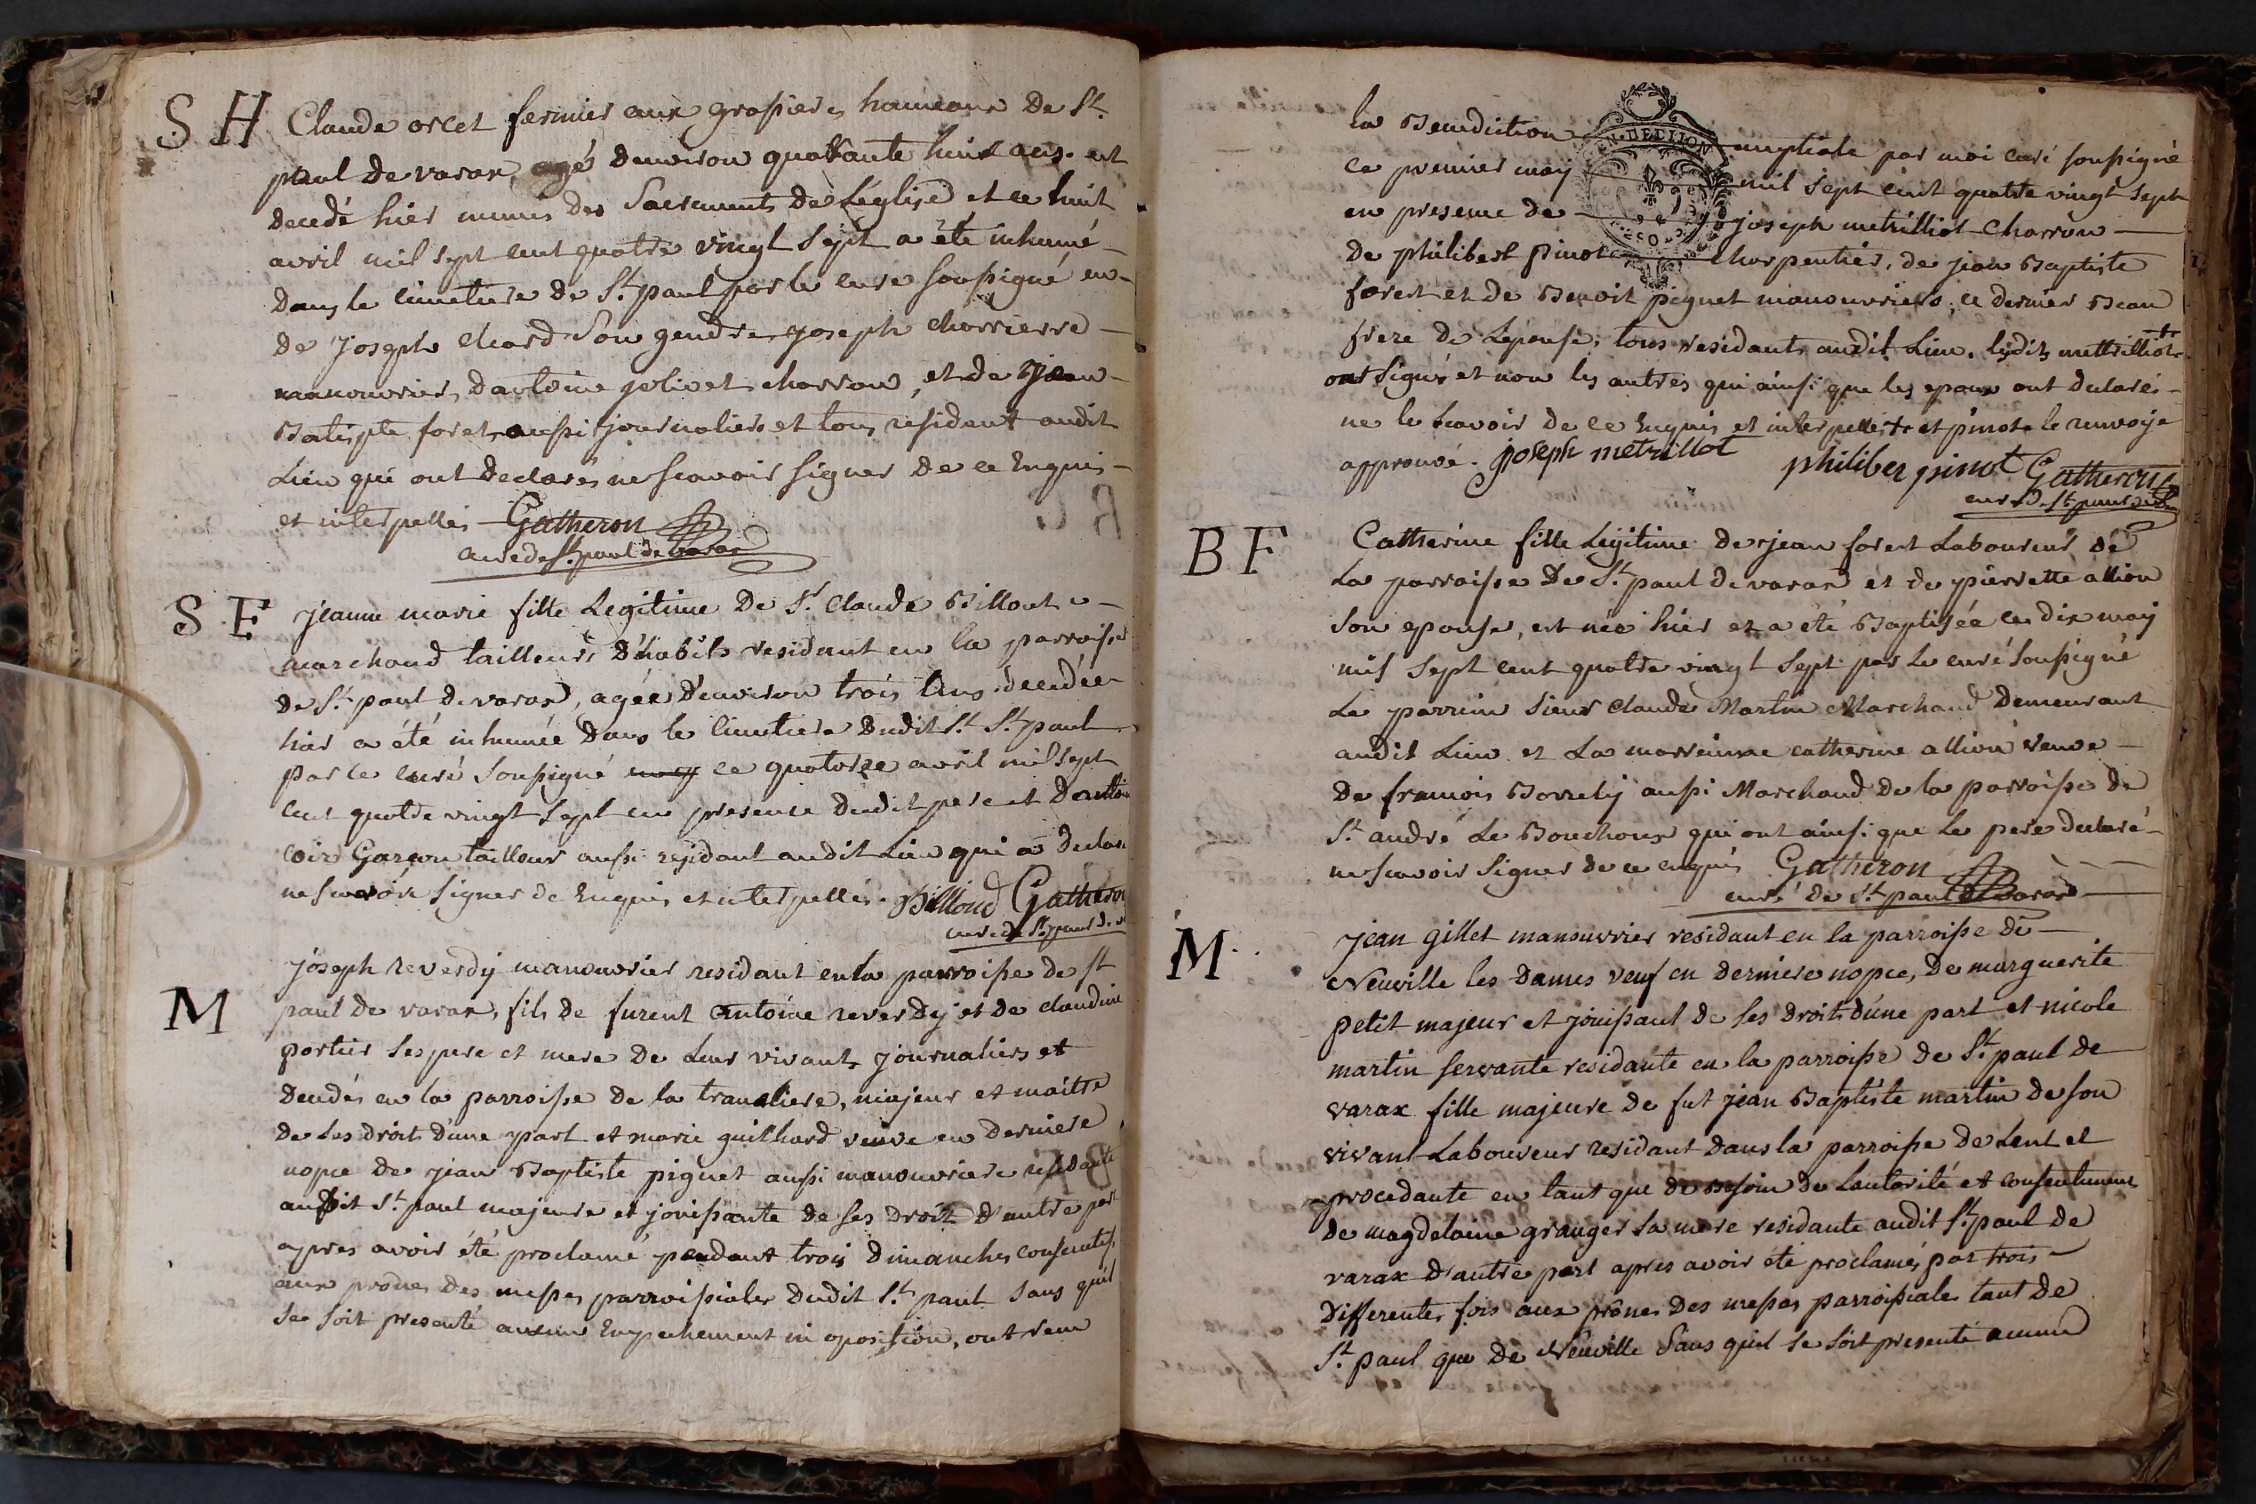 S H
Claude orcet fermier aux grosieres hameaux De St
paul de varax, agé denviron quarante huit ans est
decedé hier munis des Sacrements de Léglise et ce huit
avril mil sept cent quatre vingt sept a été inhumé
dans le cimetiere de St paul par le curé soussigné en
de joseph chard son gendre, joseph charrierre
manouvrier, dantoine jolivet charron, et de jean
Batispte foret, aussi journaliers et tous résident audit
Lieu qui ont déclarés ne scavoir signer de ce Enquis
et interpellés Gatheron
curé de St. paul de varax
S F
jeanne marie fille Legitime De Sr. claude Billout
marchand tailleur D'habits residant en la parroisse
de St. paul de varax, agée d'environ trois ans decedée
hier a été inhumée dans le cimetiere dudit St. St paul
par le curé soussigné ce quatorze avril mil sept
cent quatre vingt sept en presence dudit pere et D'antoin
coin Garçon tailleur aussi résidant audit Lieu qui a declaré
ne scavoir signer de Enquis et interpellés. Billoud Gatheron
curé de St. paul de v
M
joseph reverdy manouvrier residant en la parroisse de st
paul de varax, fils de furent antoine reverdy et de claudine
portier ses pere et mere de leur vivants journaliers et
decedés en la parroisse de la tranchiere, majeur et maitre
de ses droits d'une part et marie guilhard veuve en derniere
nopce de jean Baptiste piguet aussi manouvriere residante
audit St. paul majeure et jouissante de ses droits d'autre part
apres avoir été proclamé pendant trois dimanches consecutifs
aux prones des messes parroissiales dudit St. paul sans qu'il
se soit presenté aucun Empechement ni oposition, ont recu
la Benediction nuptiale par moi curé soussigné
ce premier may mil sept cent quatre vingt sept
en presence de joseph metrilliot charron
de philibert pinot charpentier, de jean Baptiste
forest et de Benoit piguet manouvriers, ce dernier Beau
frere de L'épouse, tous residants audit Lieu. lesdits mettrilliot +
ont signés et non les autres qui ainsi que les epoux ont declarés
ne le scavoir de ce Enquis et interpellés + et pinot le renvoye
approuvé. joseph metrillot philiber pinot Gatheron
curé de St paul de
B F
Catherine fille Légitime de jean forest Laboureur de
La parroisse De St. paul de varax et de pierrette allion
son epouse, est née hier et a été Baptisée ce dix may
mil sept cent quatre vingt sept par le curé soussigné
Le parrein sieur claude Martin Marchand Demeurant
audit Lieu et La marreinne catherine allion veuve
De francois Borrely aussi Marchand de la parroisse de
St. andré Le Bouchoux qui ont ainsi que le pere declaré
ne scavoir signer de ce enquis Gatheron
curé de St. paul de varax
M
jean gillet manouvrier residant en la parroisse de
Neuville les Dames veuf en derniere nopce, de marguerite
petit majeur et jouissant de ses droits d'une part et nicole
martin servante residante en la parroisse de St. paul de
varax fille majeure de fut jean Baptiste martin de son
vivant Laboureur residant dans la parroisse de Lent et
procedante en tant que de Besoin de Lautorité et consentement
de magdelaine granger sa mere residante audit St. paul de
varax d'autre part apres avoir été proclamés par trois
Differentes fois aux prônes des messes parroissiales tant de
St. paul que de Neuville sans qu'il se soit presenté aucun